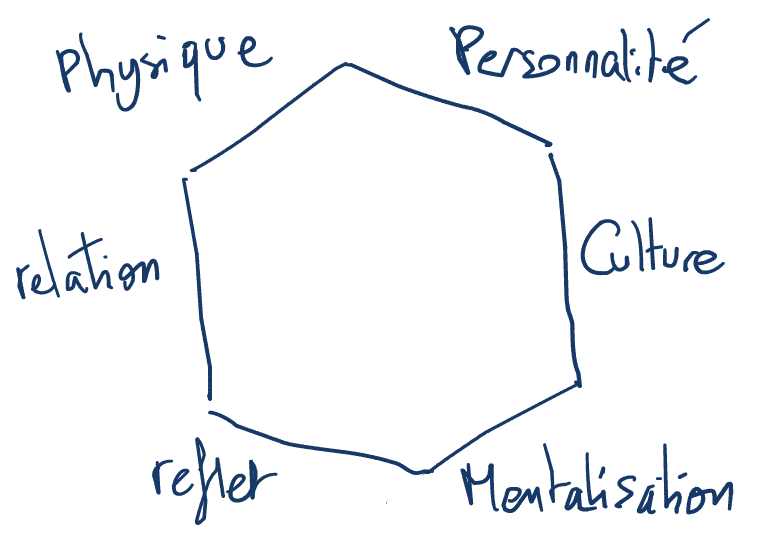 Physique
Personnalité
relation
Culture
reflet
Mentalisation